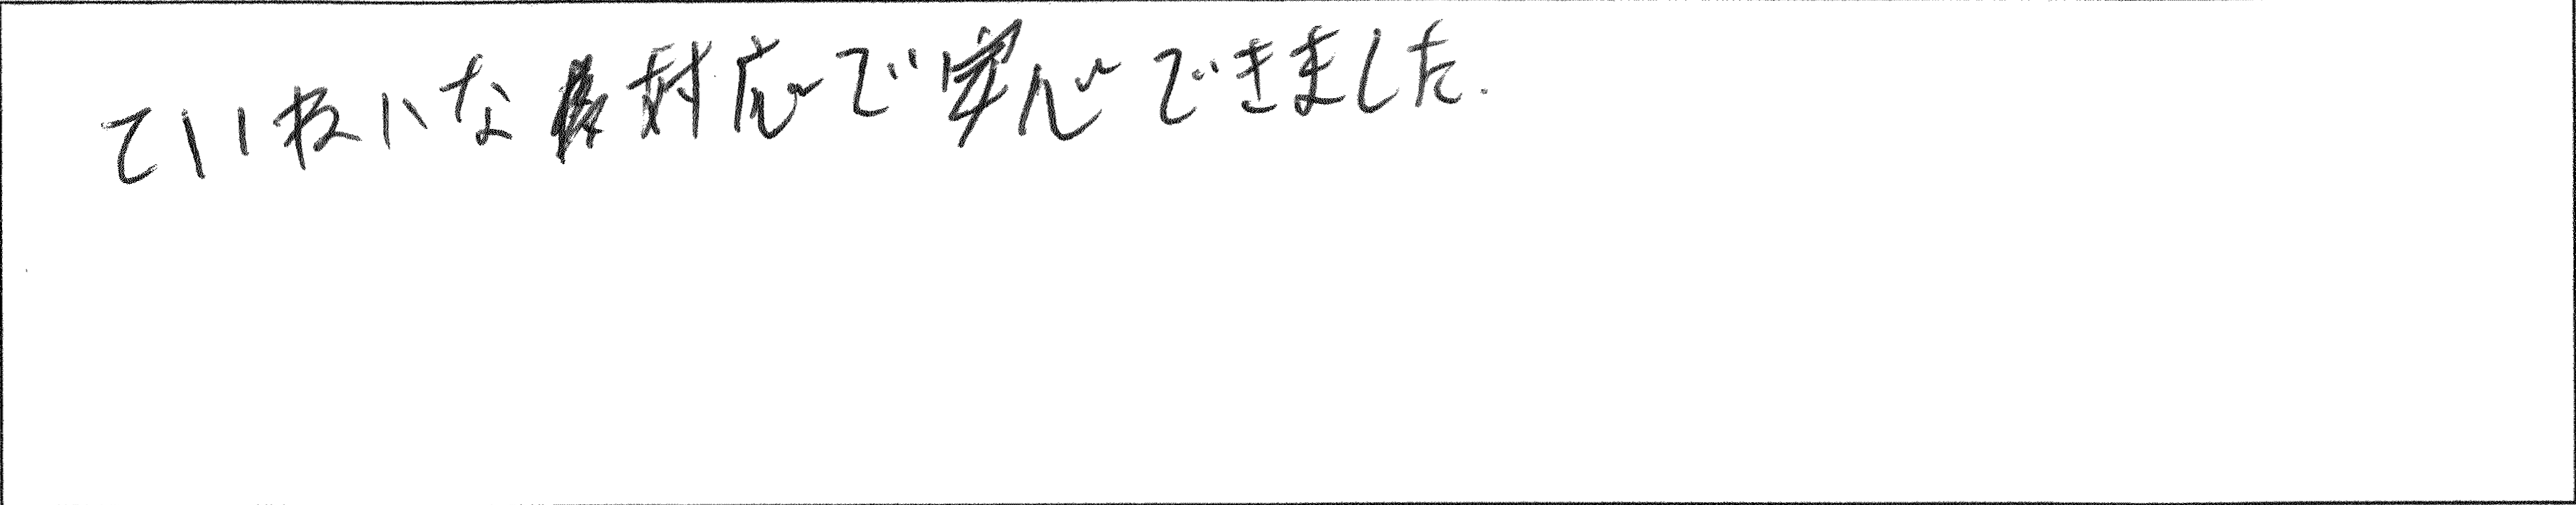 ていねいな対応で安心できました.